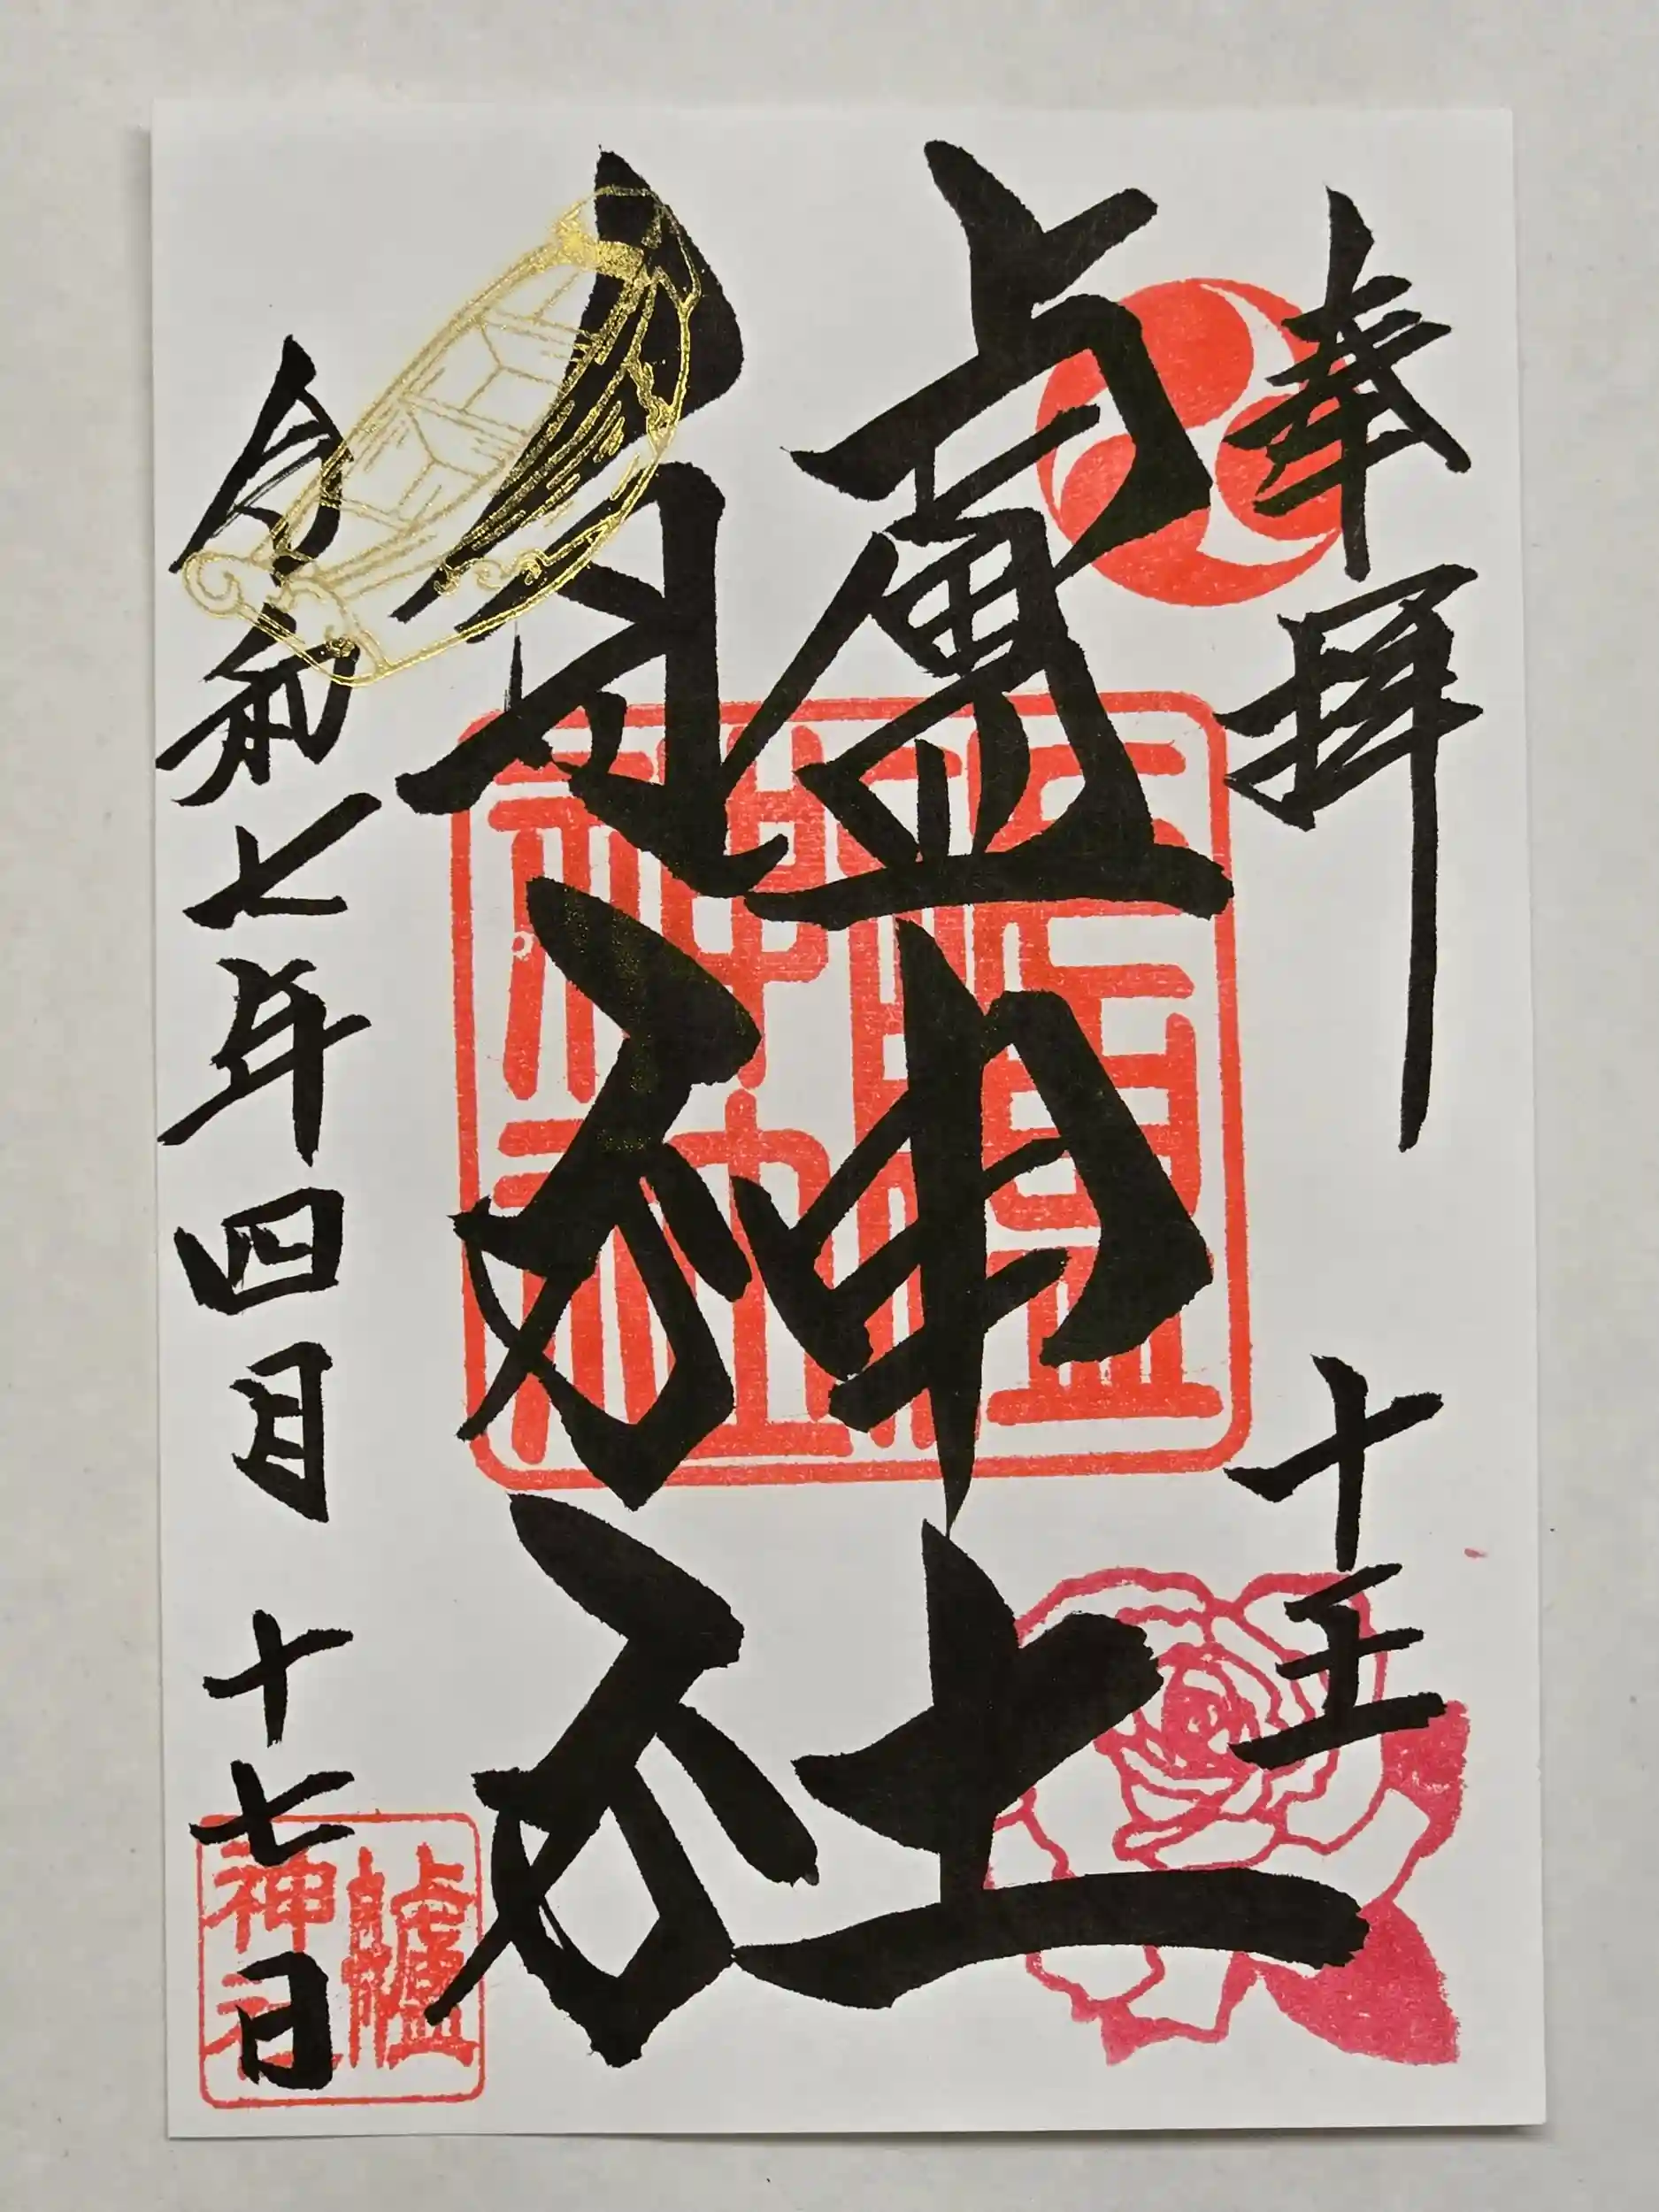 奉拝
十王
艫神社
艫神社
艫神社
令和七年四月十七日